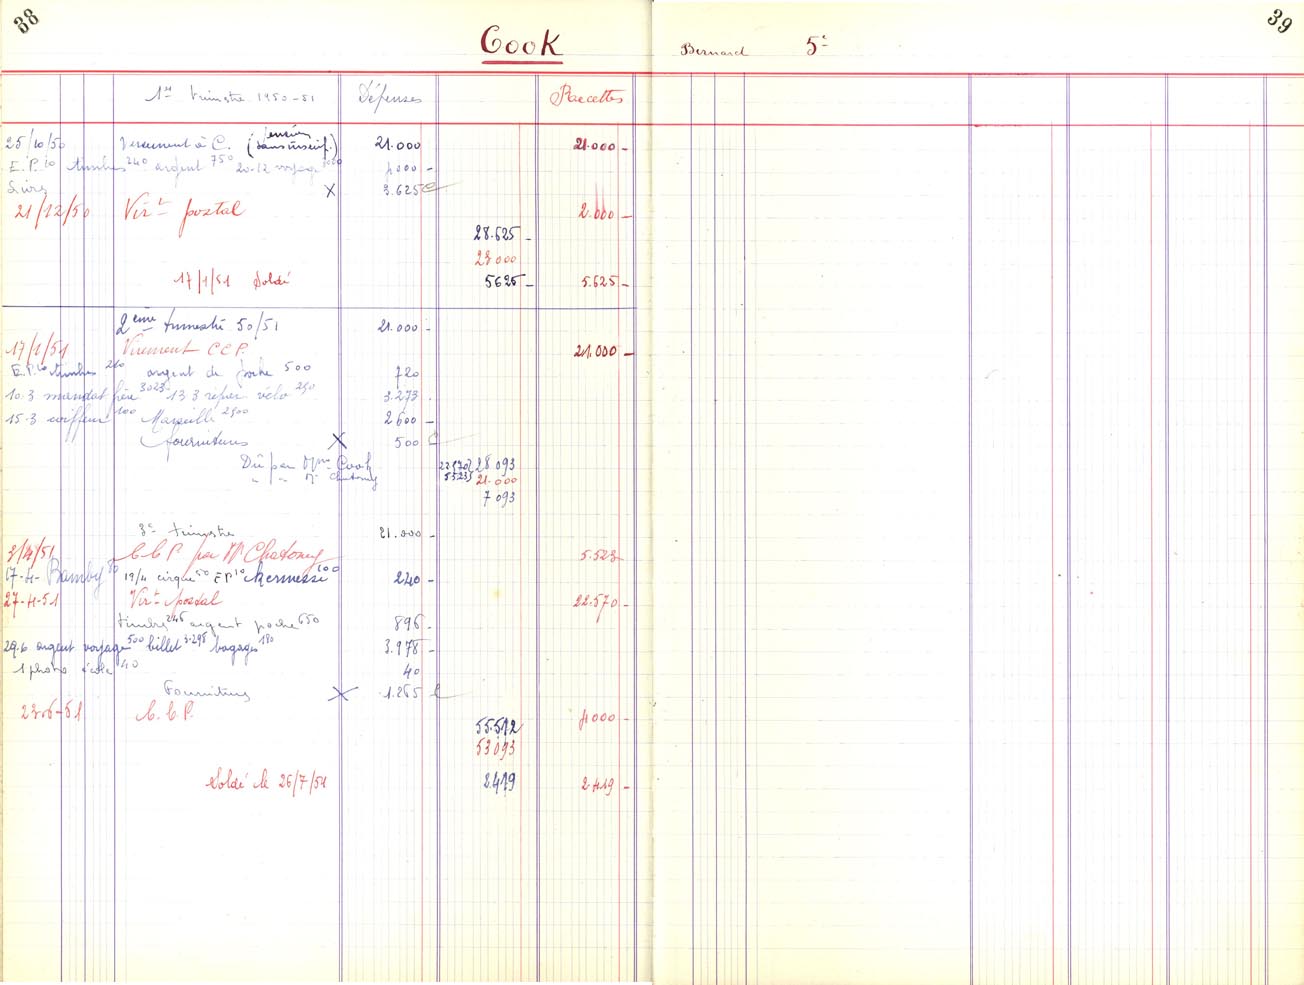 38
Cook
Bernard 5e
39
1er trimestre 1950-51 Dépenses Recettes
25/10/50 Versement à C. (pension sans tussinf.) 21.000 21.000 -
E.P. 10 timbres 240 argent 750 20-12 voyage 3000 4000 -
Livres X 3.625
21/12/50 Virt postal 2.000 -
28.625 -
23 000
17/1/51 Soldé 5625 - 5.625 -
2ème trimestre 50/51 21.000 -
17/1/51 Virement C.C.P. 21.000 -
E.P. 10 timbres 210 argent de poche 500 720
10.3 mandat père 3023 13 3 répar. vélo 250 3.273
15.3 coiffeur 100 Marseille 2500 2600 -
fournitures X 500
Dû par Mme Cook 22570 28 093
" " Mr Chatomy 5523 21.000
7 093
3e trimestre 21.000 -
3/4/51 C.C.P. par Mr Chatomy 5.523
17-4- Bamby 80 19/4 cirque 50 E.P. 10 kermesse 100 240 -
27-4-51 Virt postal 22.570 -
timbre 246 argent poche 650 896 -
29.6 argent voyage 500 billet 3.298 bagages 180 3.978 -
1 photo école 40 40
Fournitures X 1.265
23-6-51 C.C.P. 4000 -
55.512
53 093
Soldé le 26/7/51 2.419 2 419 -